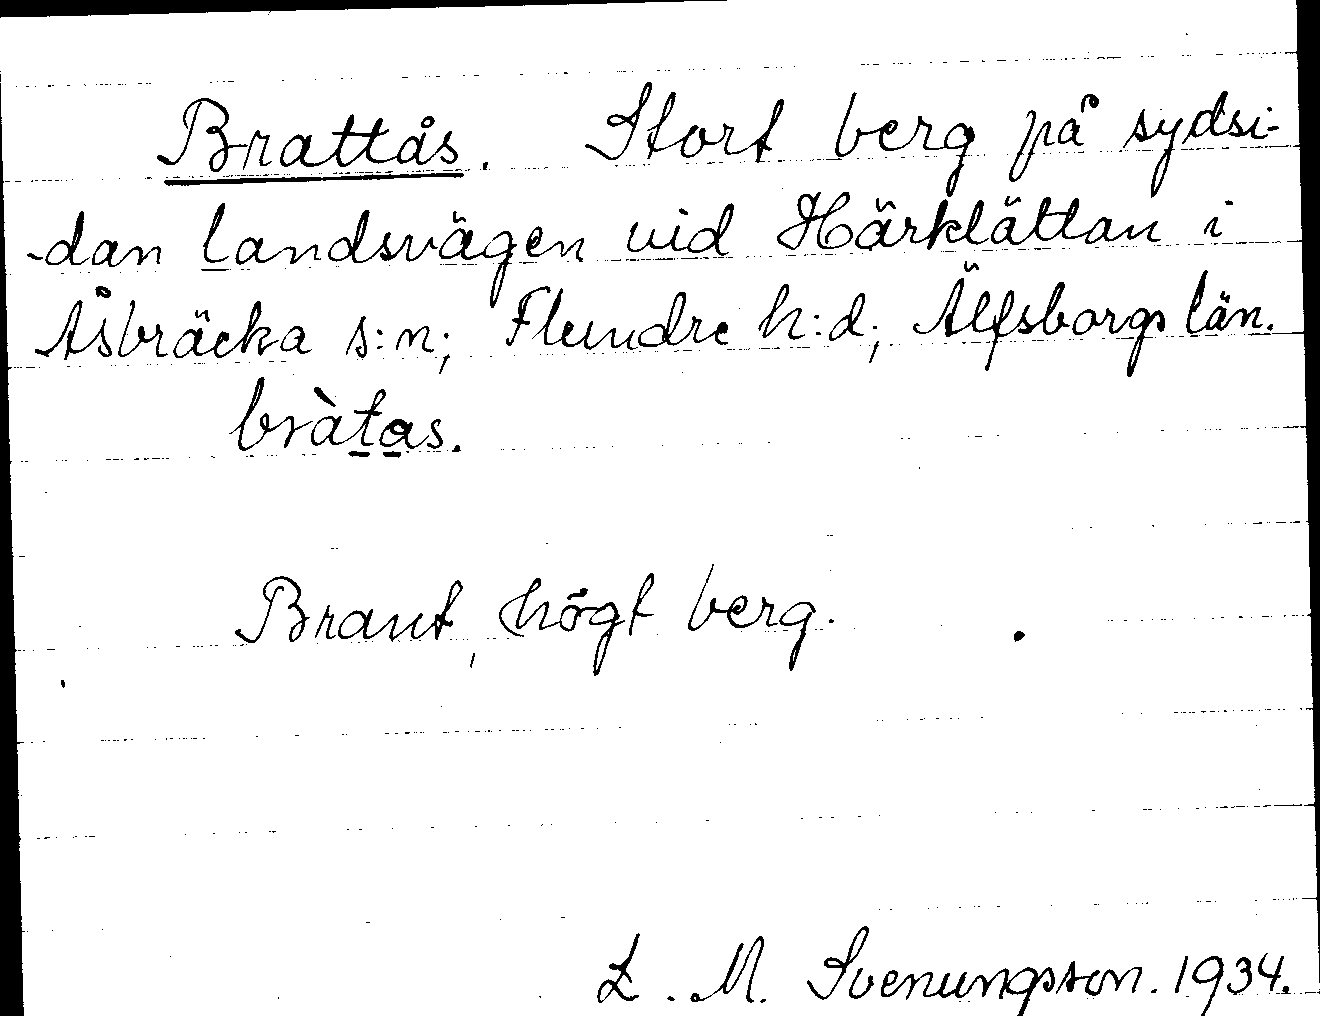 Brattås. Stort berg på sydsi-
-dan landsvägen vid Härklättan i
Åsbräcka s:n; Flundre h:d; Älfsborgs län.
bràtas.
Brant, högt berg.
L. M. Svenungsson. 1934.